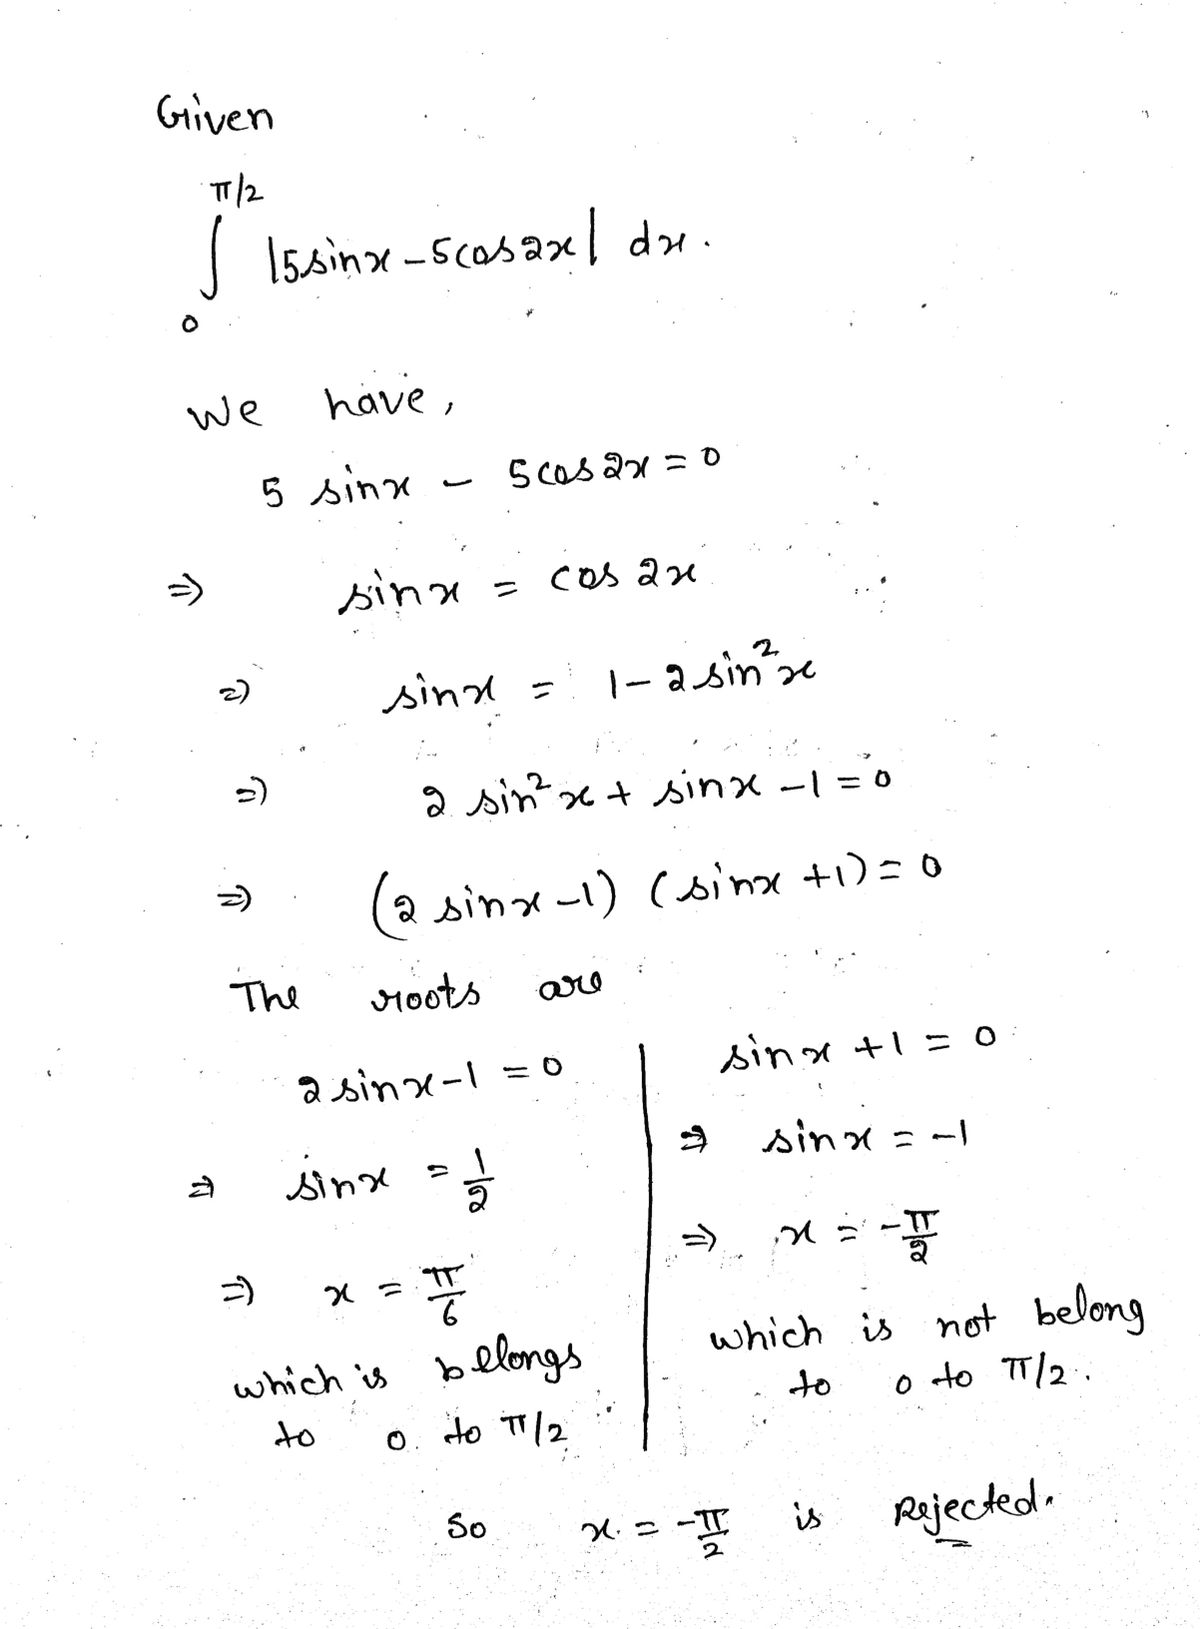 Given
π/2
∫ |5sinx - 5cos2x| dx.
0
We have,
5 sinx - 5cos2x = 0
⇒ sinx = cos 2x
⇒ sinx = 1-2sin²x
⇒ 2 sin²x + sinx -1 = 0
⇒ (2 sinx-1) (sinx +1) = 0
The roots are
2 sinx-1 = 0
⇒ sinx = 1/2
⇒ x = π/6
which is belongs
to 0 to π/2
sinx +1 = 0
⇒ sinx = -1
⇒ x = -π/2
which is not belong
to 0 to π/2.
So x = -π/2 is Rejected.